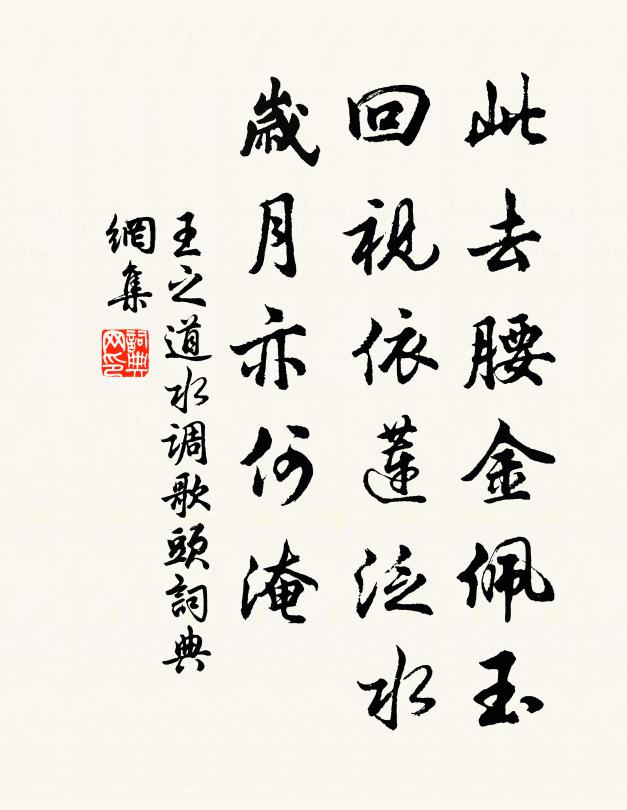 此去腰金佩玉
回視依蓮泛水
歲月亦何淹
王之道水调歌頭詞典
網集
詞典
网印